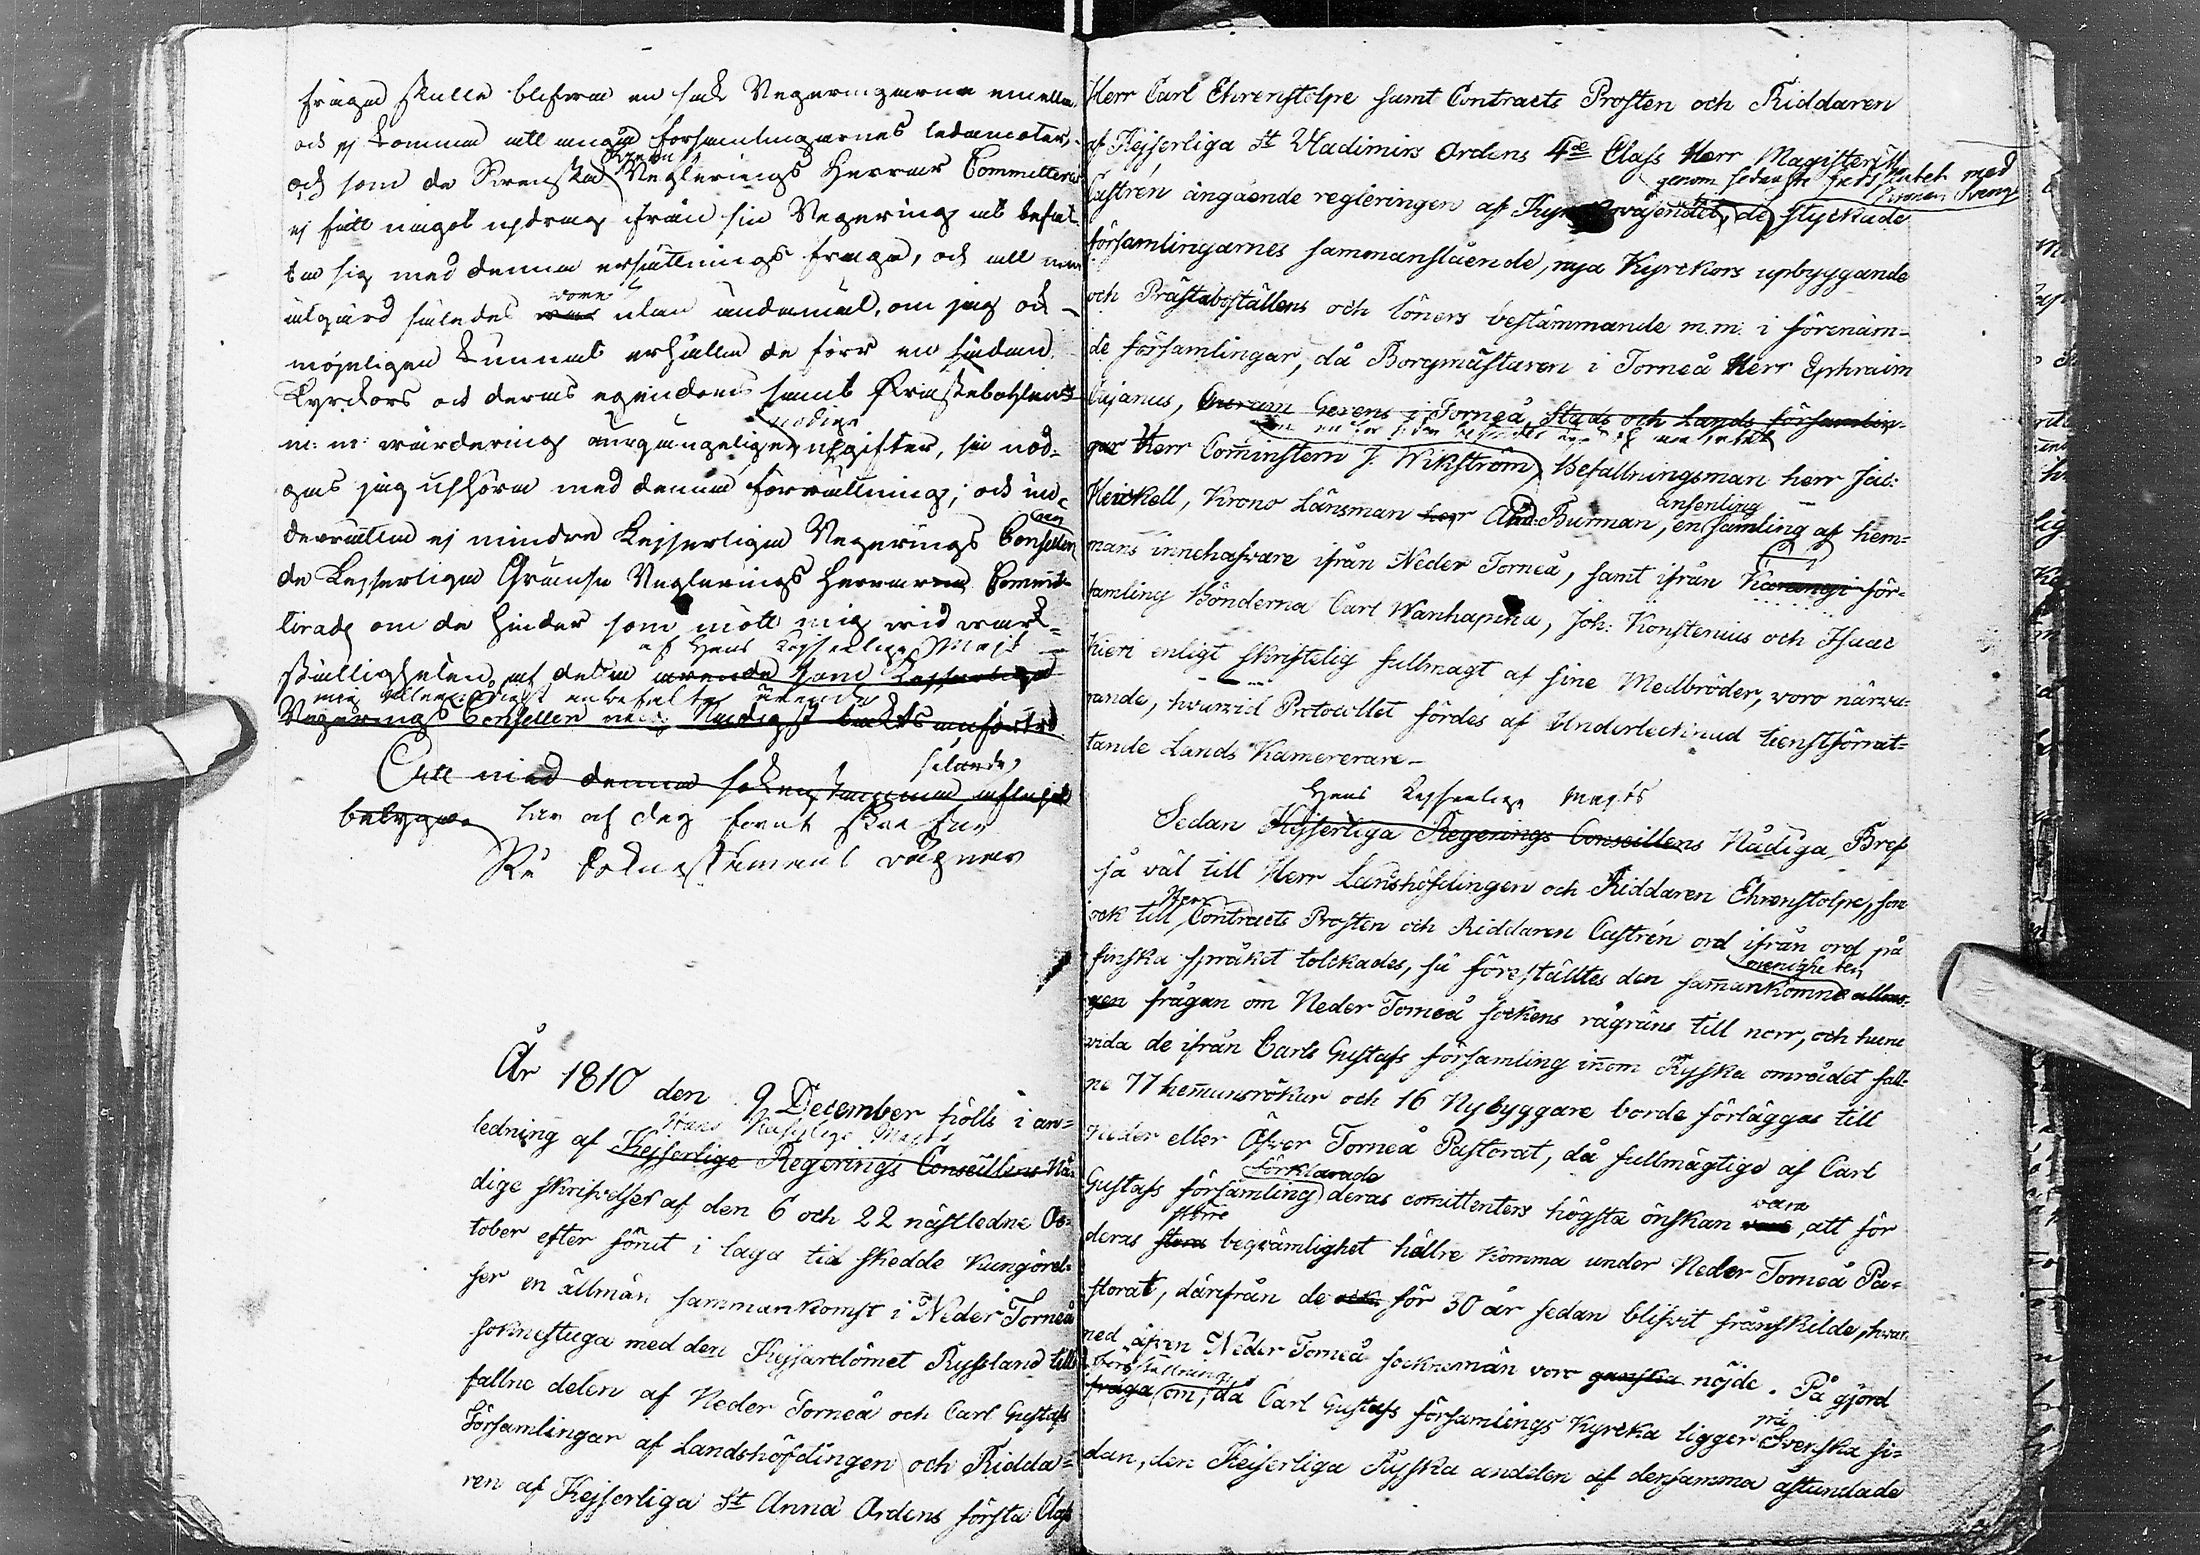 frågan skulle blifwa en sak Regeringarna emellan
och ej komma att angå församlingarnes ledamöter
och som de Svenska Reglerings Herrar Committerade
ej fått något updrag ifrån sin Regering at befat-
ta sig med denna ersättnings fråga, och all min
åtgärd således vore utan ändamål, om jag och
möjeligen kunnat erhålla de förr en sådan
Kyrckors och deras egendoms samt Prästebohlens
m: m: wärdering oumgängelige nödige utgifter, så nöd-
gas jag uphöra med denna förrättning; och un-
derrätta ej mindre Kejserliga Regerings Conseillen
de Kejserliga Gränse Reglerings Herrar Commit-
terade om de hinder som mött mig wid werk-
af Hans Kejserliga Majt
ställigheten af detta ärende som Kejserliga
mig allernådigst anbefalte ärende
Regerings Conseillen
Nådigst
Att med denna
År 1810 den 9 December hölls i an-
Hans Kejserlige Majts
ledning af Kejserlige Regerings Conseillens Nå-
dige skrifvelser af den 6 och 22 nästledne Oc-
tober efter förut i laga tid skedde kungörel-
ser en allmän sammankomst i Neder Torneå
soknestuga med den Kejsardömet Ryssland till
fallne delen af Neder Torneå och Carl Gustafs
Församlingar af Landshöfdingen och Ridda-
ren af Kejserliga St Anna Ordens första Class
Herr Carl Ehrenstolpe samt Contracts Prosten och Riddaren
af Kejserliga St Wladimirs Ordens 4de Class Herr Magistern M
genom sednaste freds slutet med
Castrén angående regleringen af Kyrkowäsendet, de styckade
församlingarnes sammanslående, nya Kyrckors upbyggande
och Prästeboställens och löners bestämmande m.m. i förenäm-
de församlingar, då Borgmästaren i Torneå Herr Ephraim
Cajanus, Curam Gerens i Torneå Stads och Lands församlin-
gar Herr Comministern J. Wikström, Befallningsman herr Jac:
Heickell, Krono Länsman herr And: Burman, en ansenlig samling af hem-
mans innehafware ifrån Neder Torneå, samt ifrån Karungi för-
samling Bönderna Carl Wanhapiha, Joh: Konstenius och Isaac
Kieri enligt skriftelig fullmagt af sine Medbröder, woro närwa-
rande, hwarwid Protocollet fördes af Undertecknad tienstförrät-
tande Lands Kamererare –
Hans Kejserlige Majts
Sedan Kejserliga Regerings Conseillens Nådiga Bref
så väl till Herr Landshöfdingen och Riddaren Ehrenstolpe, som
ock till Herr Contracts Prosten och Riddaren Castrén ord ifrån ord på
finska språket tolckades, så föreställtes den sammankomne menigheten allmo-
gen frågan om Neder Torneå sockens rågräns till norr, och huru
vida de ifrån Carls Gustafs församling inom Ryska området fall-
ne 77 hemmansrökar och 16 Nybyggare borde förläggas till
Neder eller Öfver Torneå Pastorat, då fullmägtige af Carl
Gustafs församling förklarade deras comittenters högsta önskan vara, att för
deras större beqvämlighet hällre komma under Neder Torneå Pa-
storat, därifrån de ock för 30 år sedan blifvit frånskilde, hvar-
med äfven Neder Torneå socknemän voro ganska nöjde. På gjord
föreställning
fråga om, då Carl Gustafs församlings Kyrcka ligger på Svenska si-
dan, den Keiserliga Ryska andelen af densamma åstundade